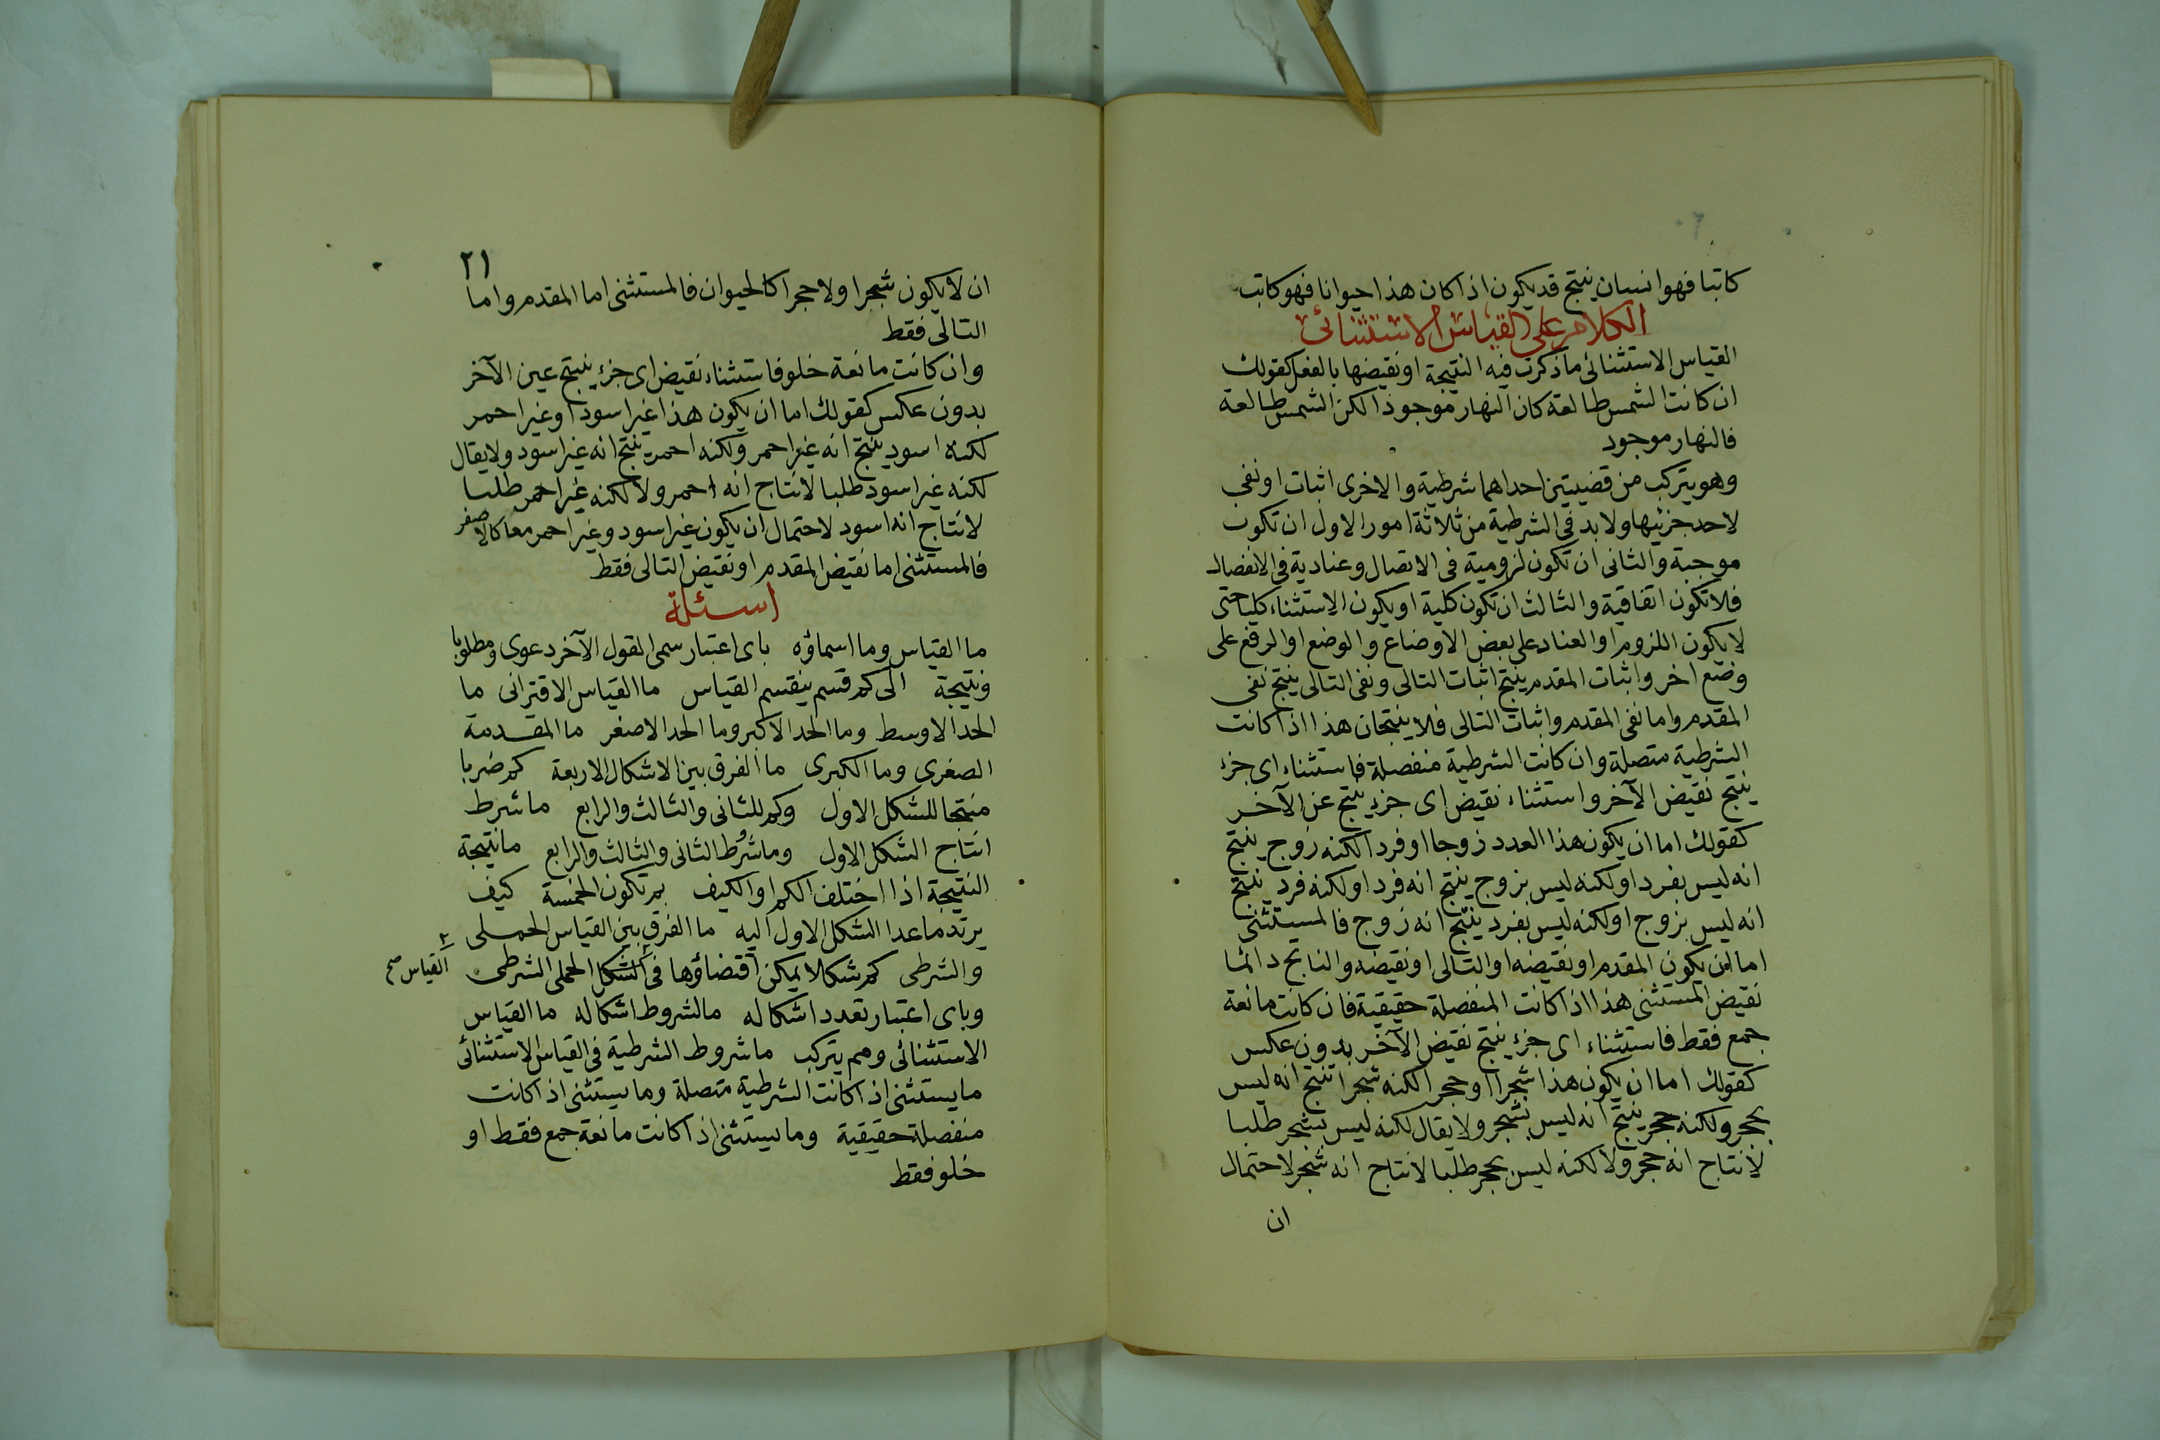 كاتبا فهو انسان ينتج قد يكون اذا كان هذا حيوانا فهو كاتب
الكلام على القياس الاستثنائى
القياس الاستثنائى ما ذكرت فيه النتيجة او نقيضها بالفعل كقولك
ان كانت الشمس طالعة كان النهار موجودا لكن الشمس طالعة
فالنهار موجود
وهو يتركب من قضيتين احداهما شرطية والاخرى اثبات او نفى
لاحد جزئيها ولا بد فى الشرطية من ثلاثة امور الاول ان تكون
موجبة والثانى ان تكون لزومية فى الاتصال وعنادية فى الانفصال
فلا تكون اتفاقية والثالث ان تكون كلية او يكون الاستثناء كليا حتى
لا يكون اللزوم او العناد على بعض الاوضاع والوضع او الرفع على
وضع اخر واثبات المقدم ينتج اثبات التالى ونفى التالى ينتج نفى
المقدم واما نفى المقدم واثبات التالى فلا ينتجان هذا اذا كانت
الشرطية متصلة وان كانت الشرطية منفصلة فاستثناء اى جزء
ينتج نقيض الآخر واستثناء نقيض اى جزء ينتج عين الآخر
كقولك اما ان يكون هذا العدد زوجا او فردا لكنه زوج ينتج
انه ليس بفرد او لكنه ليس بزوج ينتج انه فرد او لكنه فرد ينتج
انه ليس بزوج او لكنه ليس بفرد ينتج انه زوج فالمستثنى
اما ان يكون المقدم او نقيضه او التالى او نقيضه والناتج دائما
نقيض المستثنى هذا اذا كانت المنفصلة حقيقية فان كانت مانعة
جمع فقط فاستثناء اى جزء ينتج نقيض الآخر بدون عكس
كقولك اما ان يكون هذا شجرا او حجرا لكنه شجر ا ينتج انه ليس
بحجر ولكنه حجر ينتج انه ليس بشجر ولا يقال لكنه ليس بشجر طلبا
لانتاج انه حجر ولا لكنه ليس بحجر طلبا لانتاج انه شجر لاحتمال
ان
٢١
ان لا يكون شجرا ولا حجرا كالحيوان فالمستثنى اما المقدم واما
التالى فقط
وان كانت مانعة خلو فاستثناء نقيض اى جزء ينتج عين الآخر
بدون عكس كقولك اما ان يكون هذا غير اسود او غير احمر
لكنه اسود ينتج انه غير احمر ولكنه احمر ينتج انه غير اسود ولا يقال
لكنه غير اسود طلبا لانتاج انه احمر ولا لكنه غير احمر طلبا
لانتاج انه اسود لاحتمال ان يكون غير اسود وغير احمر معا كالاصفر
فالمستثنى اما نقيض المقدم او نقيض التالى فقط
اسئلة
ما القياس وما اسماؤه باى اعتبار سمى القول الآخر دعوى ومطلوبا
ونتيجة الى كم قسم ينقسم القياس ما القياس الاقترانى ما
الحد الاوسط وما الحد الاكبر وما الحد الاصغر ما المقدمة
الصغرى وما الكبرى ما الفرق بين الاشكال الاربعة كم ضربا
منتجا للشكل الاول وكم للثانى والثالث والرابع ما شرط
انتاج الشكل الاول وما شرط الثانى والثالث والرابع ما نتيجة
النتيجة اذا اختلف الكم او الكيف بم تكون الخمسة كيف
يرتد ما عدا الشكل الاول اليه ما الفرق بين القياس الحملى
والشرطى كم شكلا يمكن اقتضاؤها فى الشكل الحملى الشرطى
٢ القياس صح
وباى اعتبار تعدد اشكاله ما لشروط اشكاله ما القياس
الاستثنائى ومم يتركب ما شروط الشرطية فى القياس الاستثنائى
ما يستثنى اذا كانت الشرطية متصلة وما يستثنى اذا كانت
منفصلة حقيقية وما يستثنى اذا كانت مانعة جمع فقط او
خلو فقط